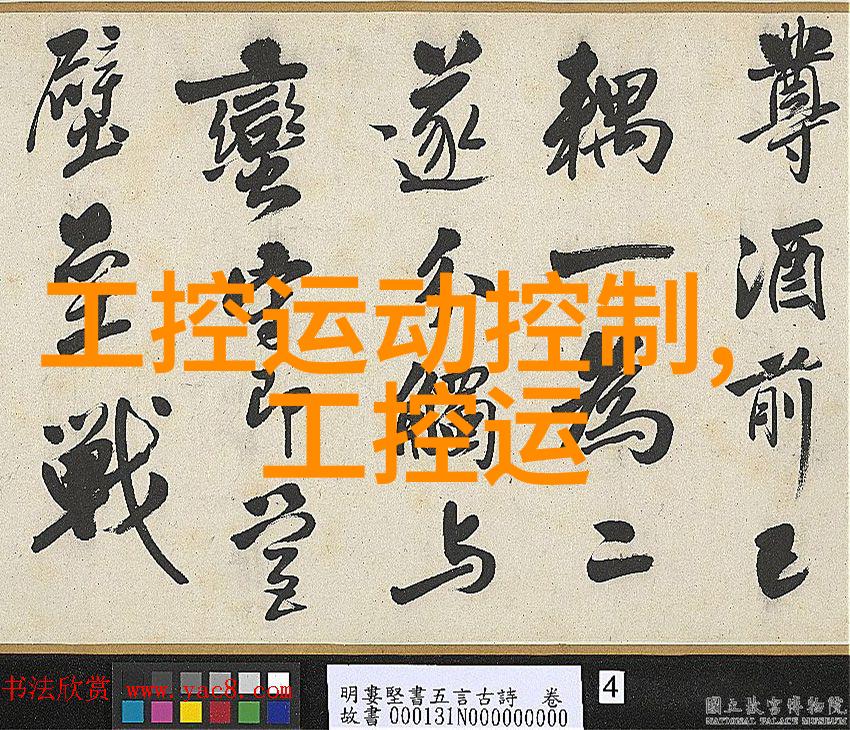 尊酒前已
耦一為二
遂分觸与
蠻即營
壁壘戰
工控运动控制,
工控运
书法欣赏 www.yac8.com
明婁堅書五言古詩 卷
故書 000131N000000000
4
國立故宮博物院
NATIONAL PALACE MUSEUM